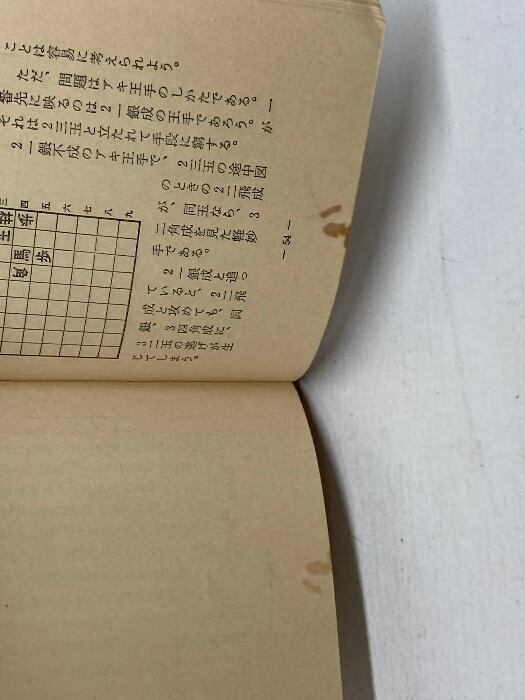 ことは容易に考えられよう。
ただ、問題はアキ王手のしかたである。一
番先に映るのは2一銀成の王手であろう。が
それは2三玉と立たれて手段に窮する。
2一銀不成のアキ王手で、2三玉の途中図
のときの2二飛成
が、同玉なら、3
二角成を見た軽妙
手である。
2一銀成と追っ
ていると、2二飛
成と攻めても、同
銀、3四角成に、
3二玉の逃げが生
じてしまう。
三四五六七八九
歩
王
馬 歩
— 54 —